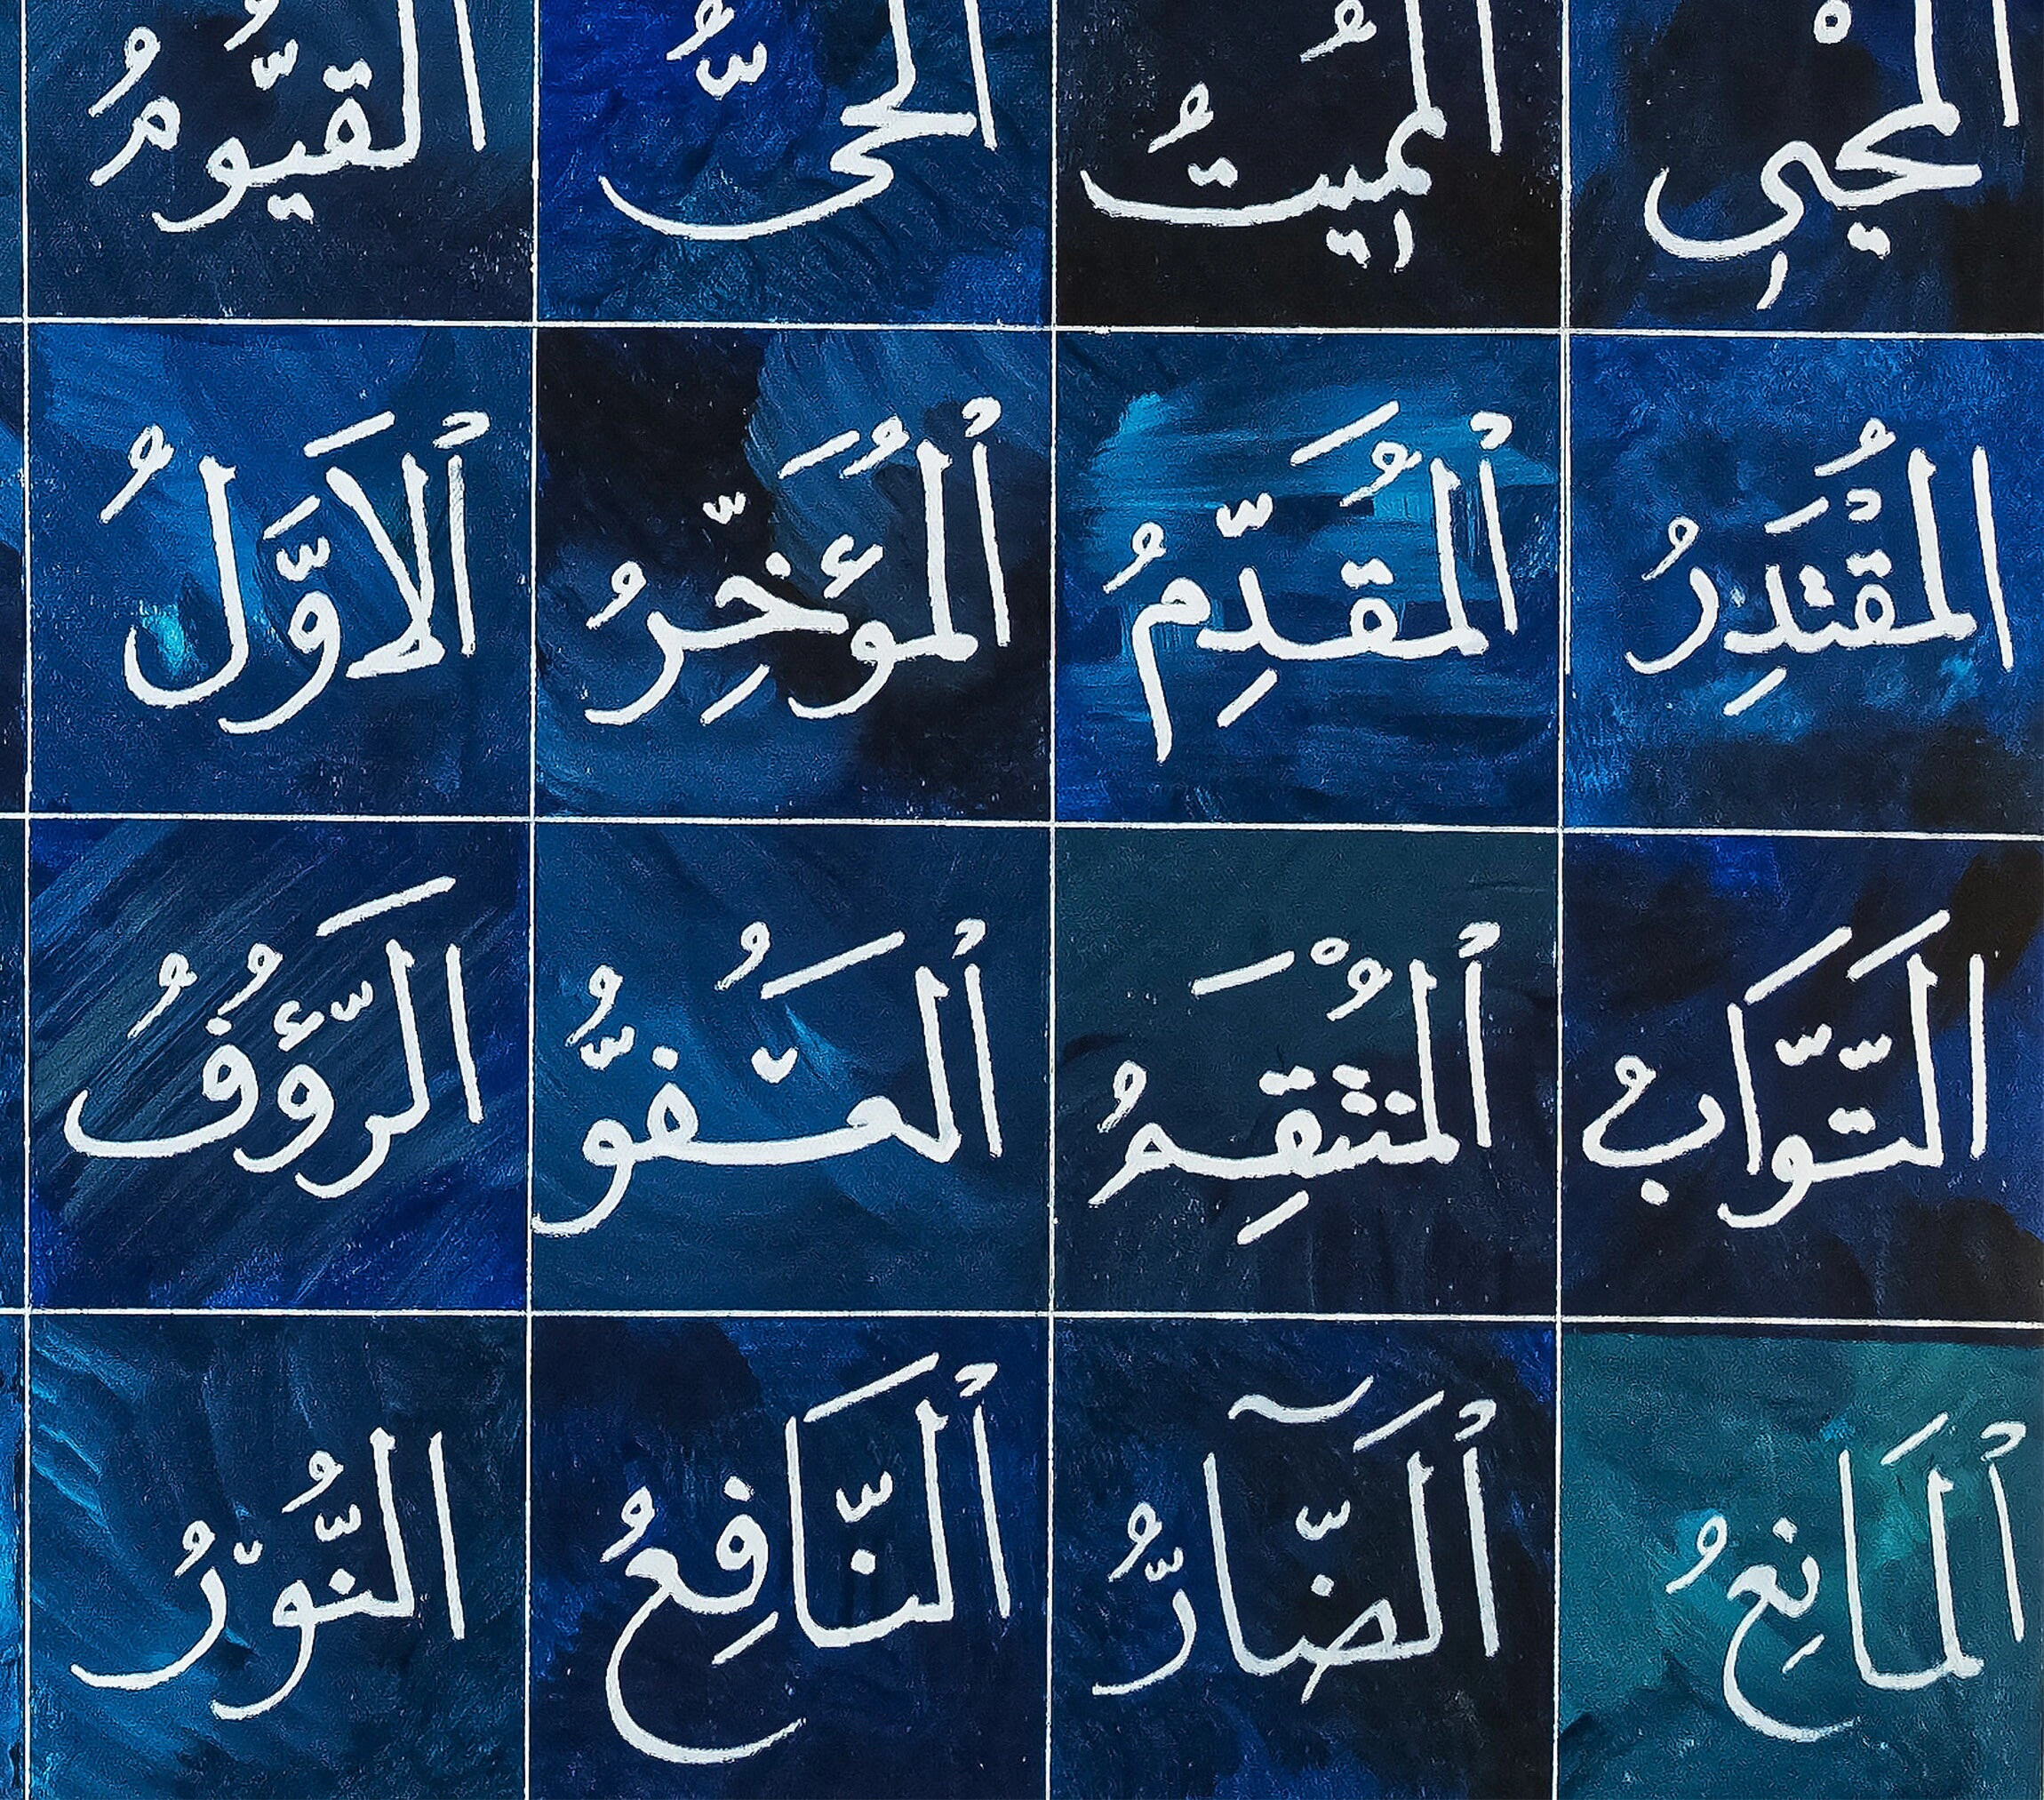 المُحْيِي المُمِيتُ الحَيُّ القَيُّومُ
المُقْتَدِرُ ٱلْمُقَدِّمُ ٱلْمُؤَخِّرُ ٱلاَوَّلُ
التَّوَّابُ ٱلْمُنْتَقِمُ ٱلْعَفُوُّ الرَّؤُفُ
ٱلْمَانِعُ ٱلضَّآرُّ ٱلنَّافِعُ النُّورُ